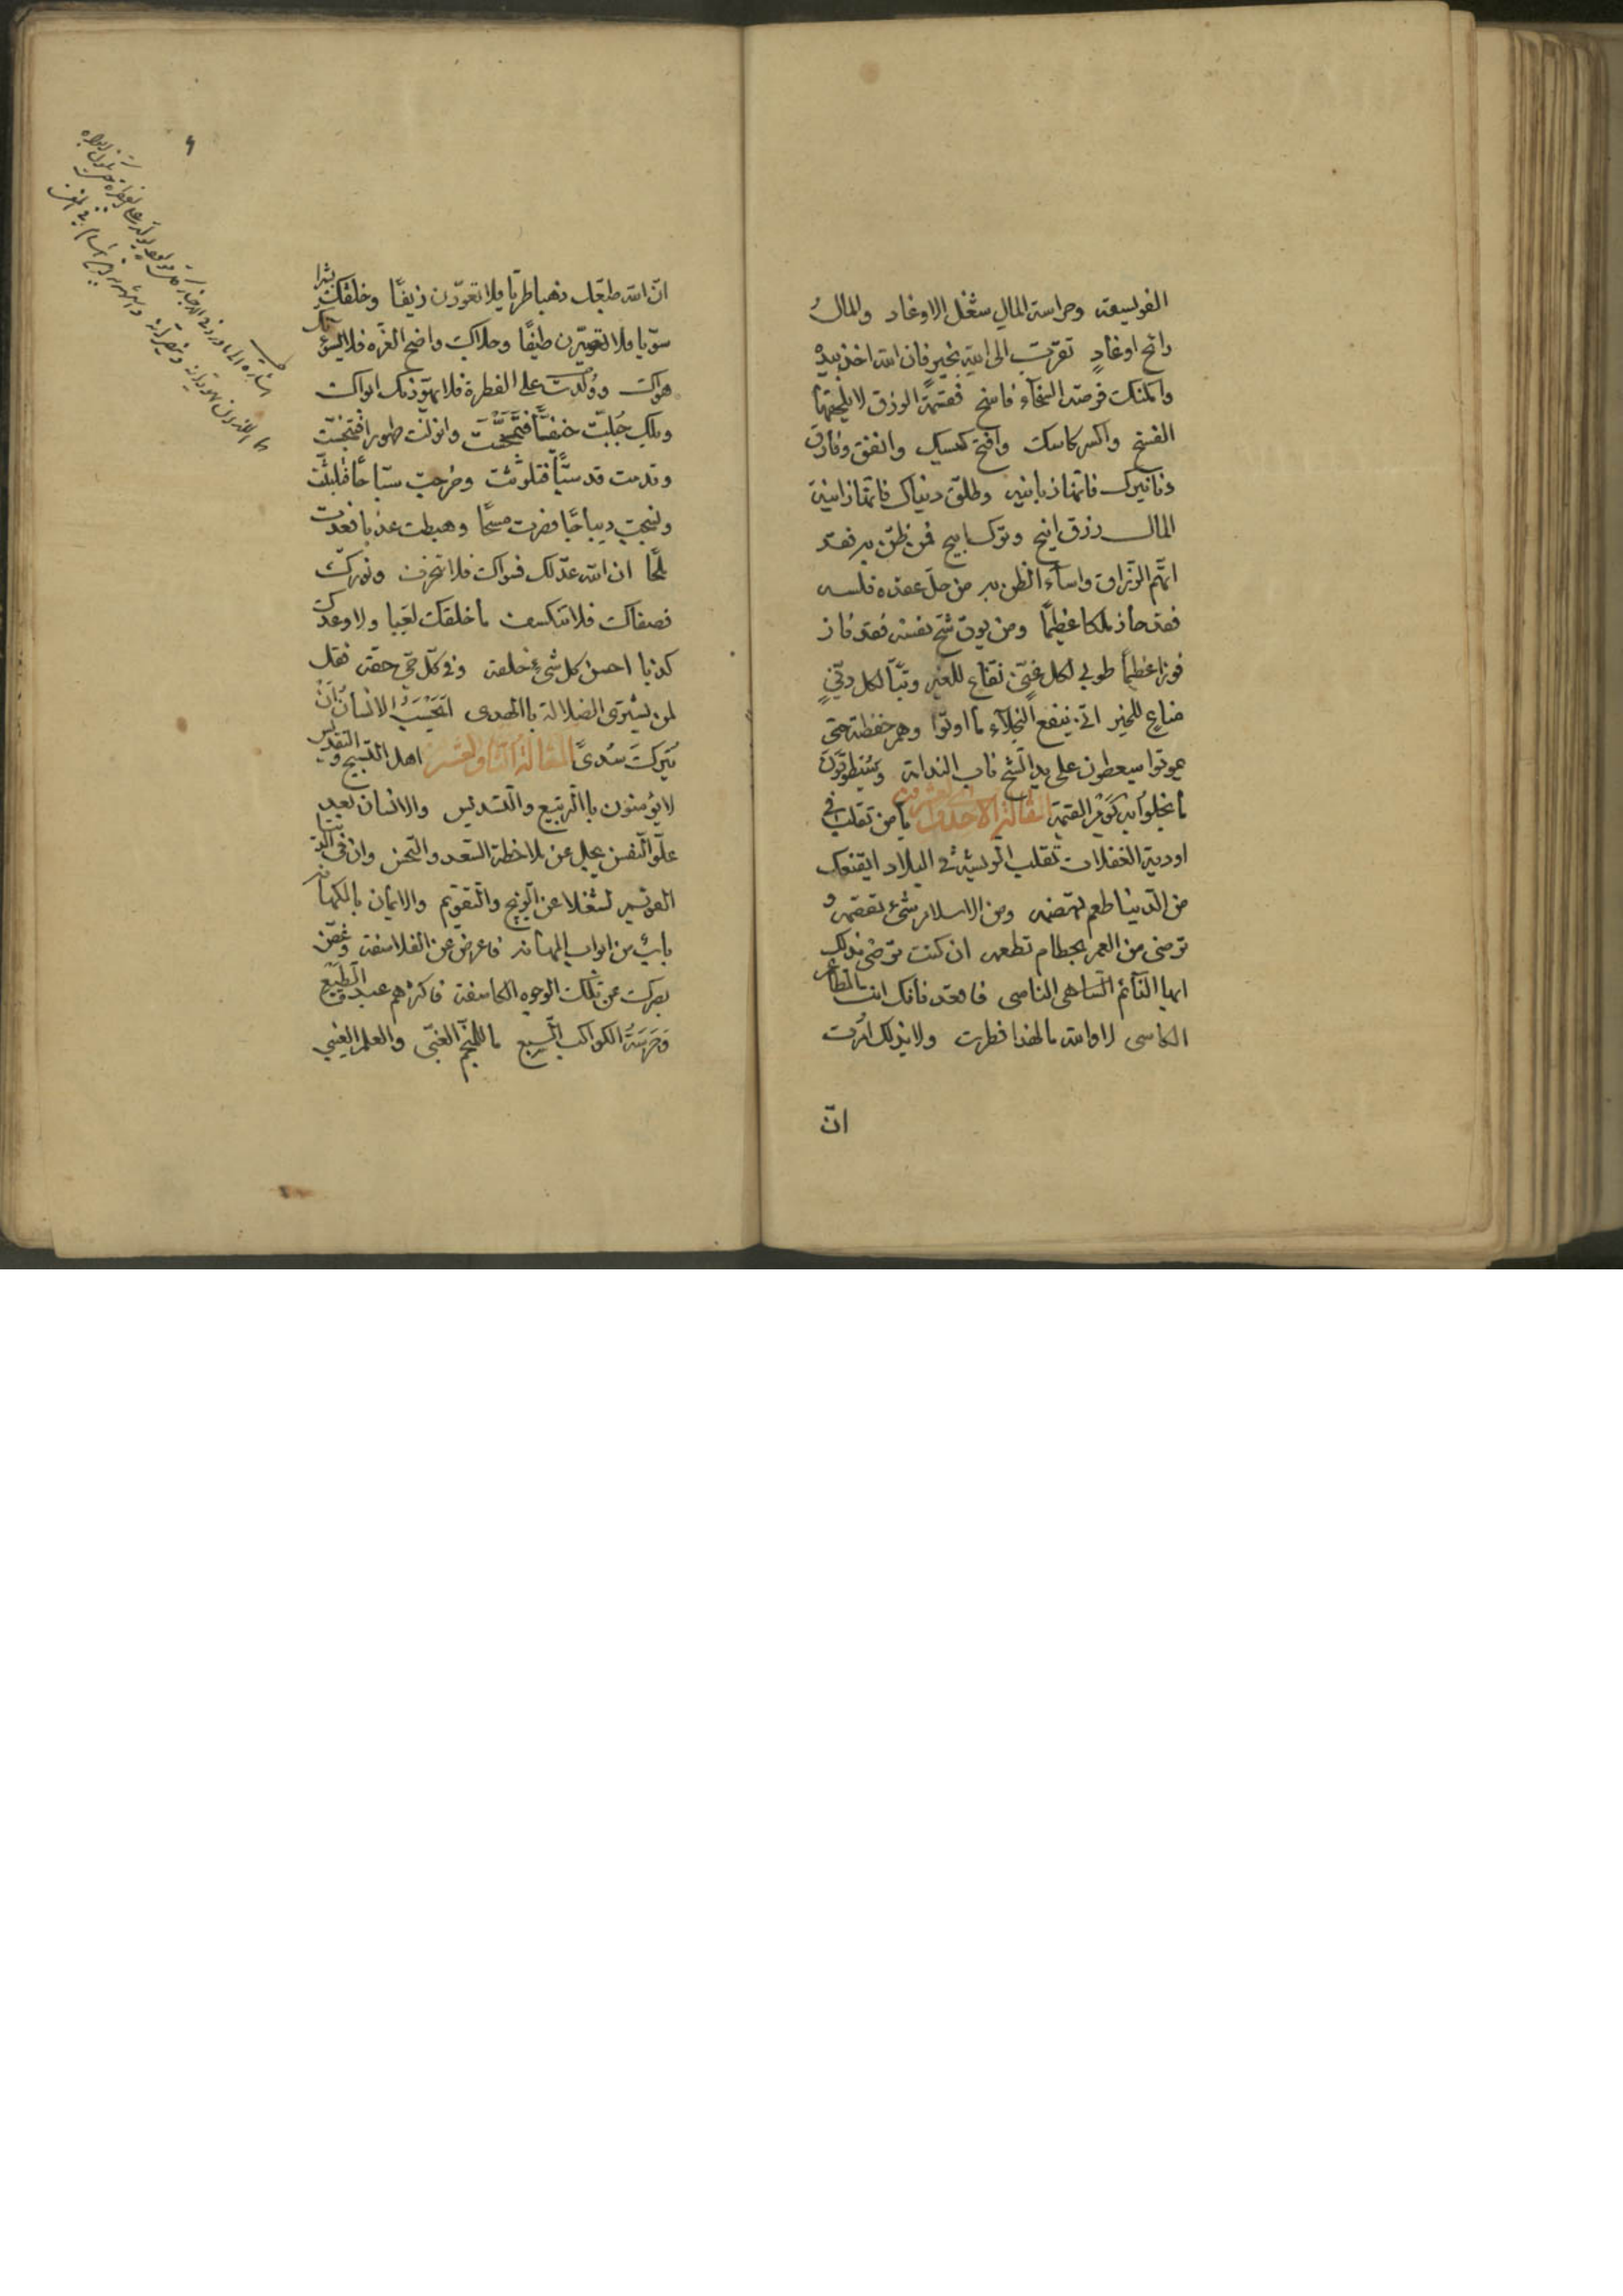 الفويسقة وحراسة المال شغل الاوغاد والمالُ
رائح اوغادٍ تقرّب الى الله بخيرٍ فان الله اخذ بيده
وامكنك فرصة السخاء فاسخ فقسمة الرزق لا يلحقها
الفسخ واكسر كاسك وافتح كيسك وانفق وفارق
دنانيرك فانها زبانية وطلّق دنياك فانها زانية
المال رزق اتيح فمن ظنّ به فقد
اتهم الرّزاق واساء الظن به من حلّ عقدة فلسه
فقد حاز ملكا عظيمًا ومن يوق شحّ نفسه فقد فاز
فوزا عظيمًا طوبى لكل غنيّ نفّاع للغير وتبّا لكل دنيّ
منّاع للخير انّى ينفع البخلاء ما اوتوا وهم حفظة حتى
يموتوا سيعضون على يد الشح ناب الندامة وسَيُطَوَّقُونَ
مَا بَخِلوُا بِهِ يَوْمَ القيمة المقالة الاحدى والعشرون يا من تقلب فى
اودية الغفلات تقلب الريشة فى الفلاة ايقنعك
من الدنيا طعم تهضمه ومن الاسلام شئ تقضمه و
ترضى من العمر بحطام تطعمه ان كنت ترضى بذلك
ايها النائم الساهى الناسى فاقعد فانك انت الطاعم
الكاسى لا والله ما لهذا فطرت ولا بذلك امرت
انّ
٩
انّ الله طبعك ذهبا طريّا فلا تعودّن زيفًا وخلقك بشرا
سويّا فلا تصيرّن طيفًا وحلاك واضح الغرّه فلا يسؤنّك
هواك وولدت على الفطرة فلا يهوّدنك ابواك
ويلك جُبلت حنيفيًّا فَتَمَجَّسْتَ وانزلت طهورا فتنجّست
وقدمت قدسيًّا فتلوثت وخرجت سبّاحًا فلبثت
ونسجت ديباجًا فصرت مسحًا وهبطت عذبا فعدت
ملحًا ان الله عدّلك فسواك فلا تنحرف ونورك
فصفاك فلا تنكسف ما خلقك لعبا ولا وعدك
كذبا احسن كل شئ خلقه وفى كلّ حىّ حقه فقل
لمن يشترى الضلالة باالهدى اَيَحْسَبُ الانْسانُ اَنْ
يُتركَ سُدىً المقالة الثانية والعشرون اهل التسبيح والتقديس
لا يؤمنون باالتربيع والتسديس والانسان بعد
علوّ النفس يجل عن ملاحظة السعد والنحس وان فى الدين
القويم لشغلا عن الزيج والتقويم والايمان بالكهانة
بابٌ من ابواب المهانة فاعرض عن الفلاسفة وغضّ
بصرك عن تلك الوجوه الكاسفة فاكثرهم عبدة الطبع
وَحَرَسَةُ الكواكب السبع ما للمنجّم الغبىّ والعلم الغيبى